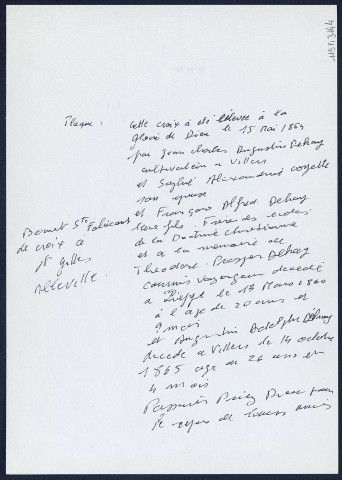 119 Fi 3144
Plaque : Cette croix a été élevée à la
Gloire de Dieu le 15 Mai 1869
par Jean Charles Augustin Dehay
cultivateur à Villers
et Sophie Alexandrine
son épouse
et François Alfred Dehay
leur fils Frère des écoles
de la Doctrine chrétienne
et à la mémoire de
Theodore Prosper Dehay
commis voyageur decedé
a Dieppe le 13 Mars 1860
à l'age de 20 ans et
9 mois
et Augustin Adolphe Dehay
decede a Villers le 14 octobre
1865 age de 26 ans et
4 mois
Passants Priez Dieu pour
le repos de leurs ames
Bonnet Ste
de croix à
St gilles
Abbeville.